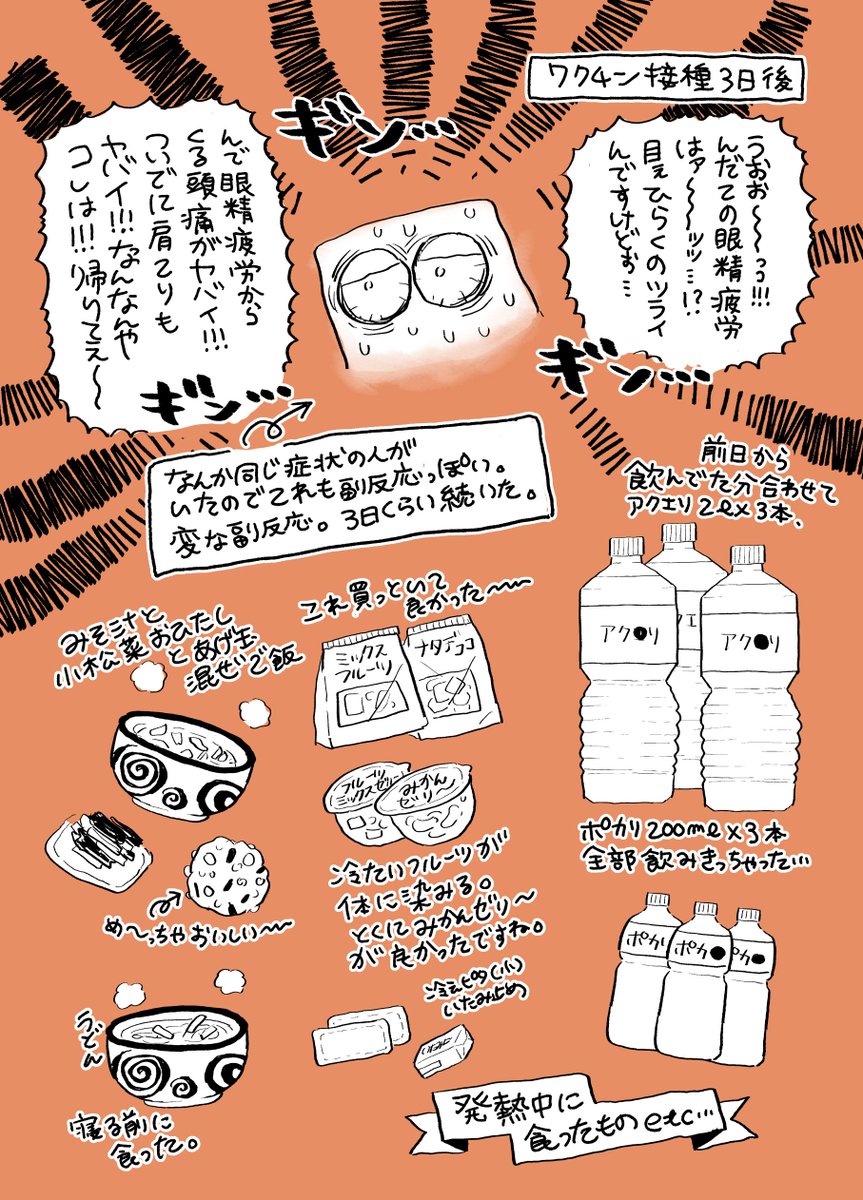 ワクチン接種3日後
うおお〜〜っコ!!!
んだての眼精疲労
はァ〜〜ッッ…!?
目ぇひらくのツライ
んですけどぉ…
ギン…
んで眼精疲労から
くる頭痛がヤバイ!!!
ついでに肩こりも
ヤバイ!!!なんなんや
コレは!!!帰りてぇ〜
ギン…
ギン…
なんか同じ症状の人が
いたのでこれも副反応っぽい。
変な副反応。3日くらい続いた。
前日から
飲んでた分合わせて
アクエリ2ℓ×3本、
アク●リ
クエ
アク●リ
ポカリ200mℓ×3本
全部飲みきっちゃった…
ポカリ
ポカ●
ポカ●
これ買っといて
良かった〜〜
ミックス
フルーツ
ナタデココ
フルーツ
ミックスゼリー
みかん
ゼリ〜
冷たいフルーツが
体に染みる。
とくにみかんゼリ〜
が良かったですね。
冷えピタ(小)
いたみ止め
みそ汁と
小松菜おひたし
とあげ玉
混ぜご飯
め〜っちゃおいしい〜〜
うどん
寝る前に
食った。
発熱中に
食ったものetc…